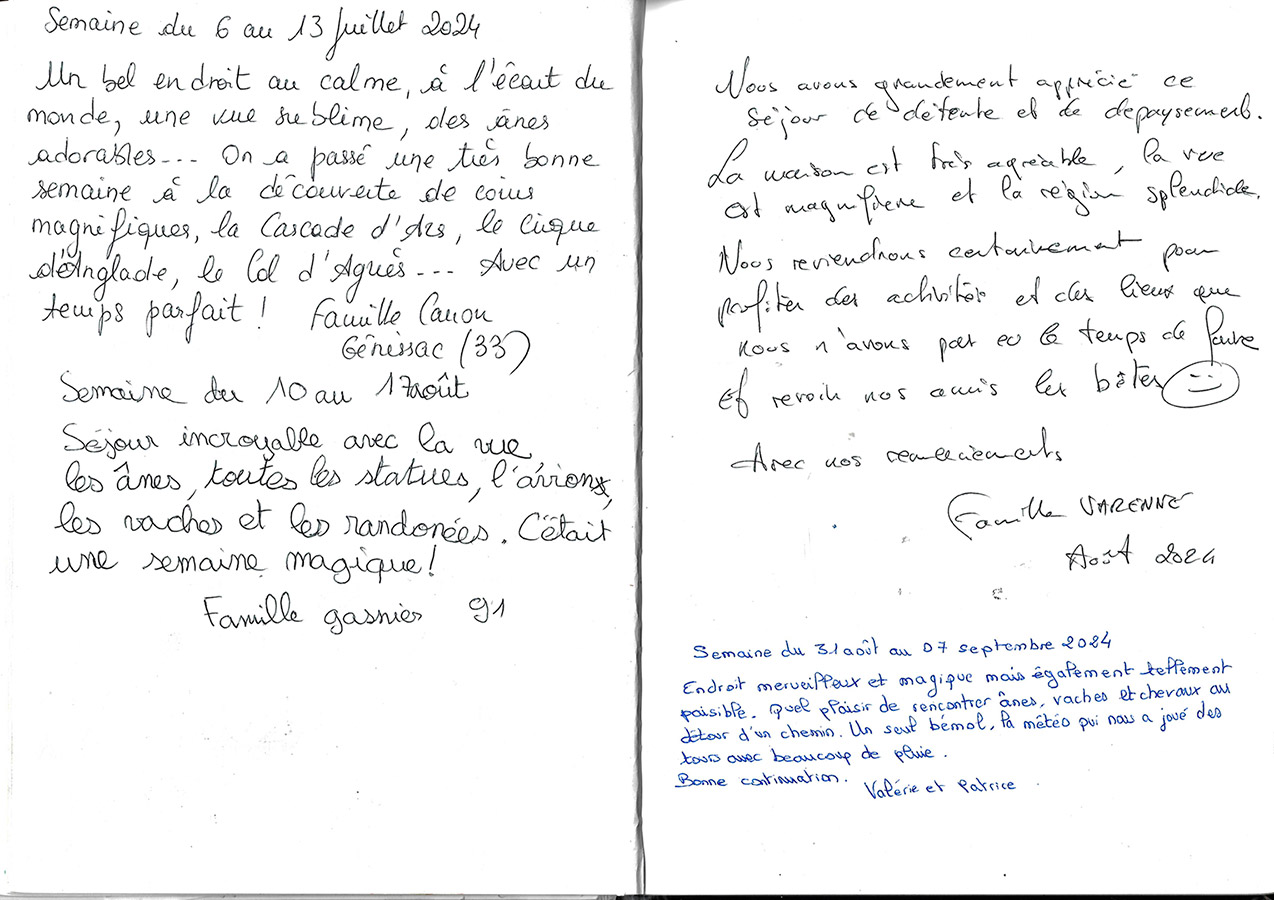 Semaine du 6 au 13 Juillet 2024
Un bel endroit au calme, à l'écart du
monde, une vue sublime, des ânes
adorables... On a passé une très bonne
semaine à la découverte de coins
magnifiques, la Cascade d'Ars, le Cirque
d'Anglade, le Col d'Agnès... Avec un
temps parfait ! Famille
Génissac (33)
Semaine du 10 au 17 août
Séjour incroyable avec la vue
les ânes, toutes les statues, l'avion,
les vaches et les randonées. C'était
une semaine magique !
Famille gasnier 91
Nous avons grandement apprécié ce
séjour de détente et de depaysement.
La maison est très agréable, la vue
est magnifique et la région splendide.
Nous reviendrons certainement pour
profiter des activités et des lieux que
nous n'avons pas eu le temps de faire
Et revoir nos amis les bêtes
Avec nos remerciements
Famille VARENNE
Août 2024
Semaine du 31 août au 07 septembre 2024
Endroit merveilleux et magique mais également tellement
paisible. Quel plaisir de rencontrer ânes, vaches et chevaux au
détour d'un chemin. Un seul bémol, la météo qui nous a joué des
tours avec beaucoup de pluie.
Bonne continuation.
Valérie et Patrice